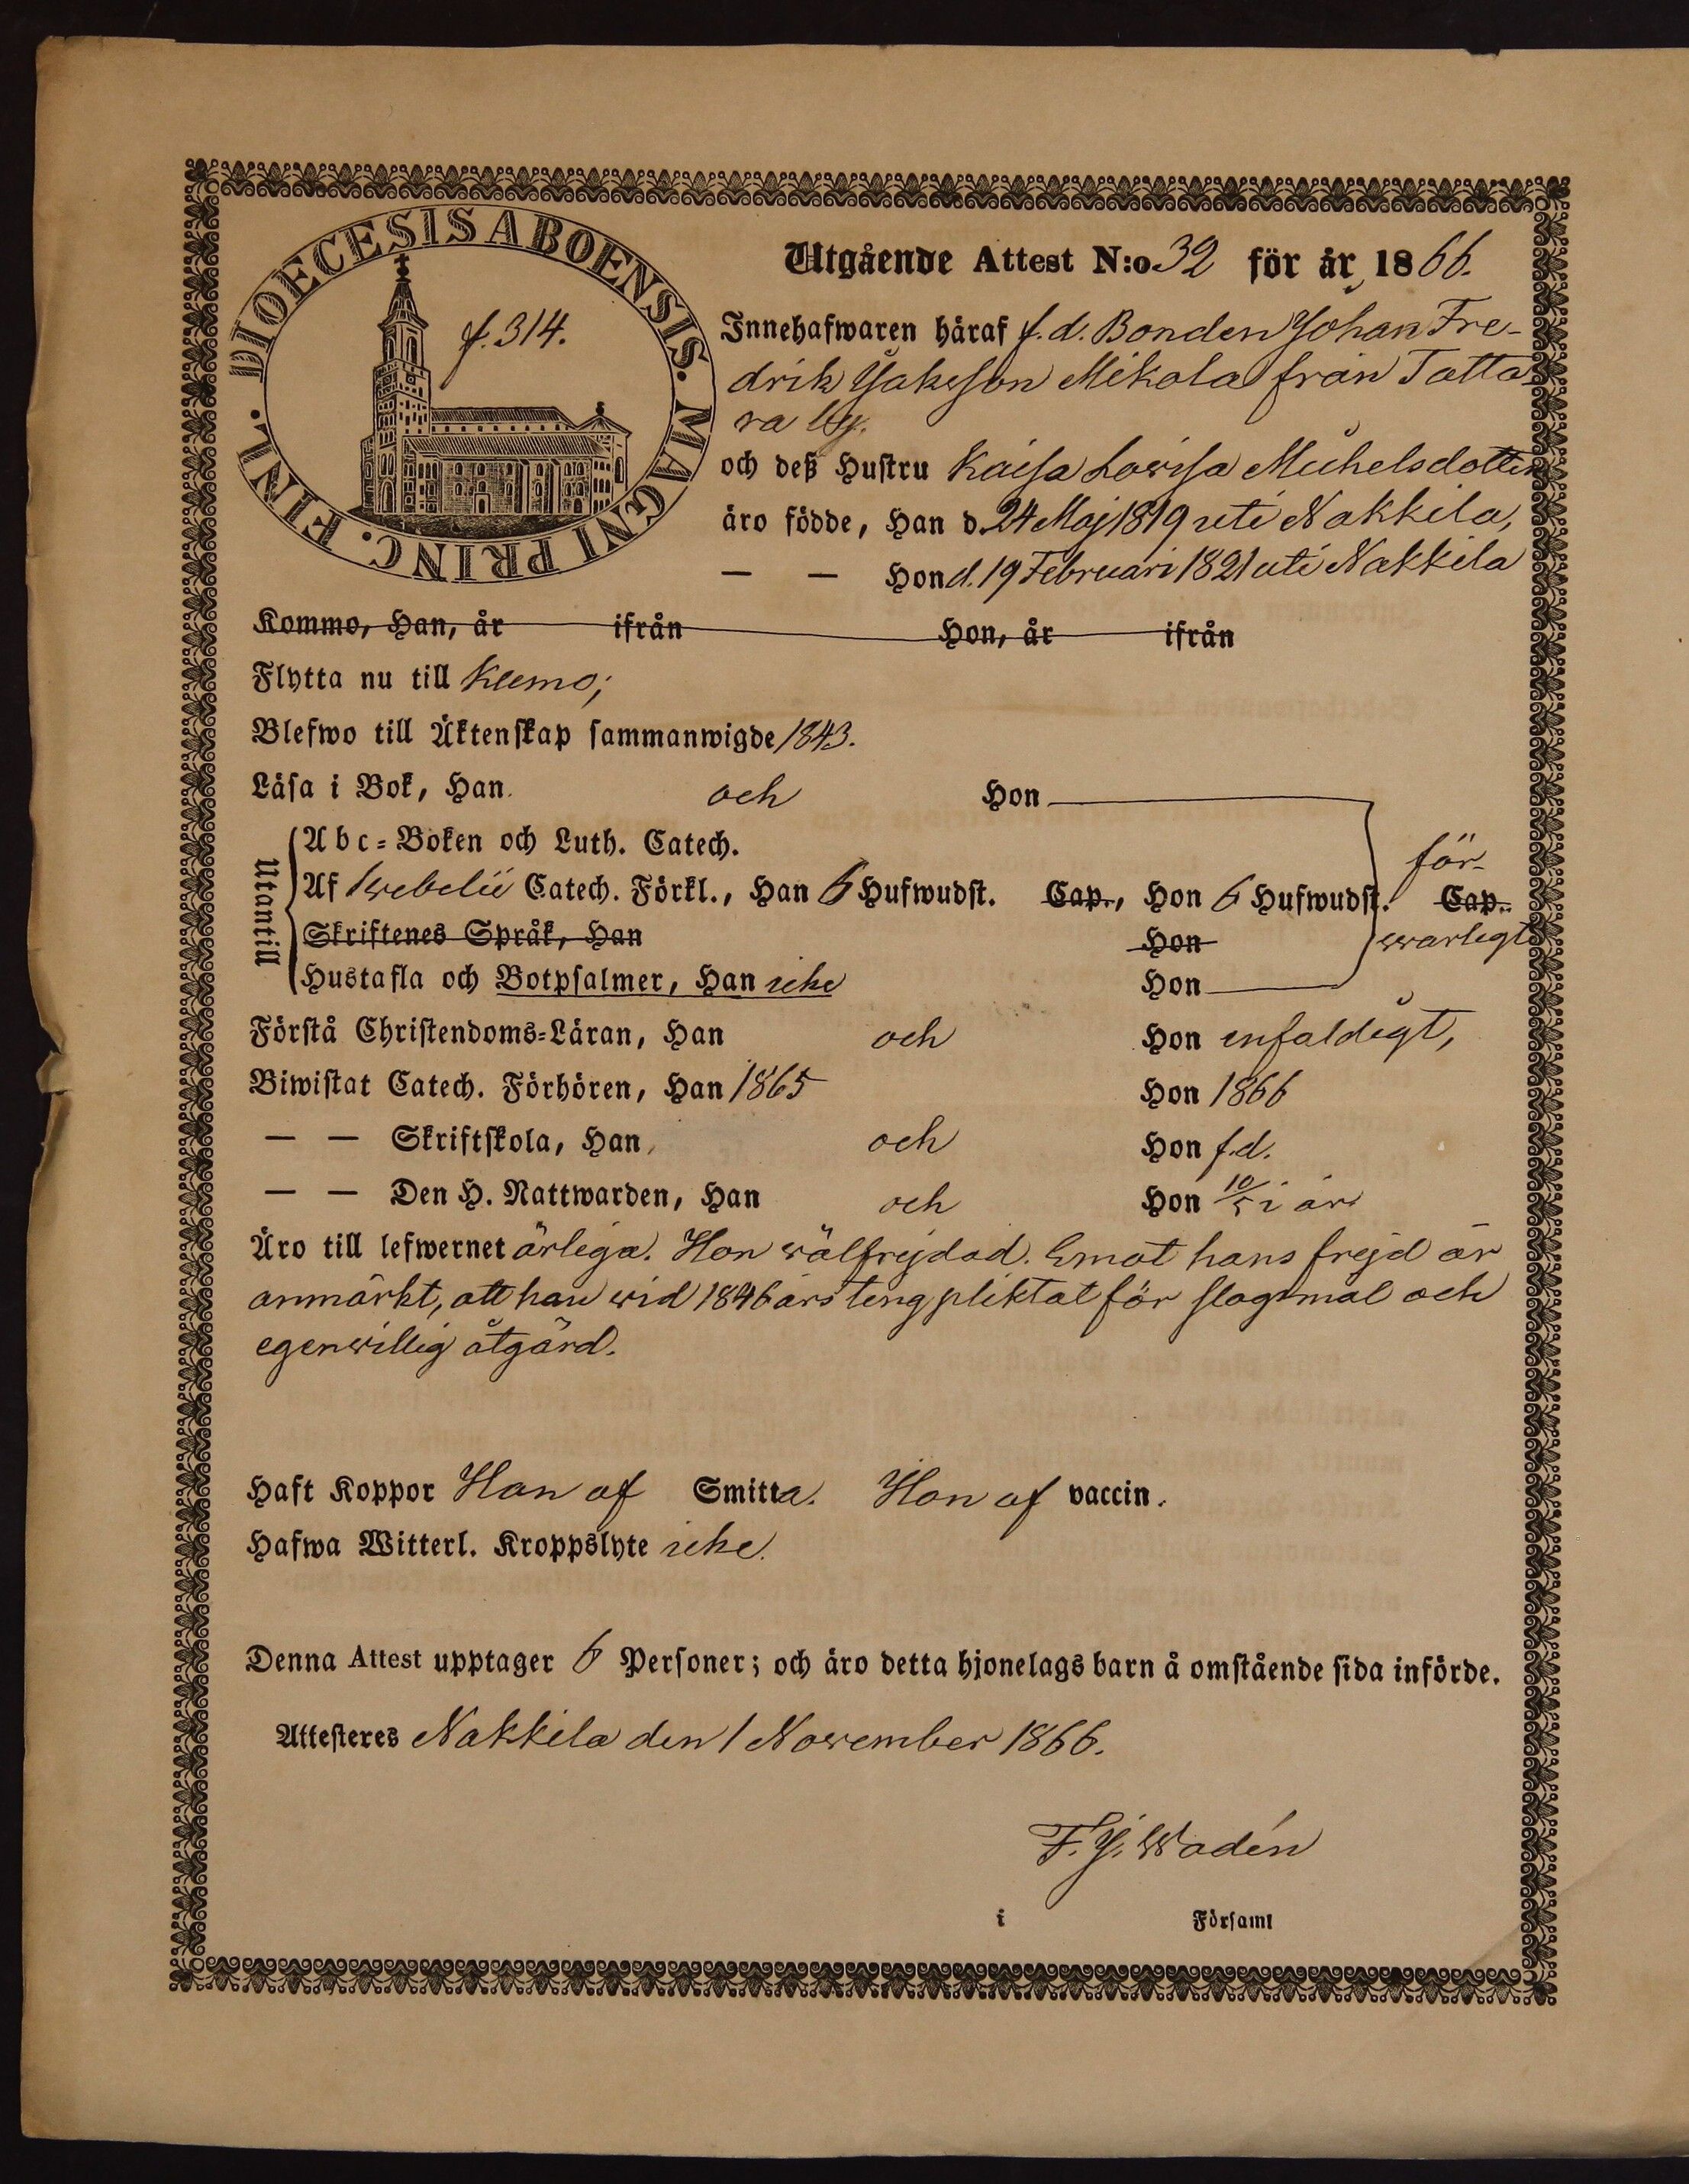 DIOECESIS ABOENSIS. MAGNI PRINC. FINL.
f. 314.
Utgående Attest N:o 32 för år 1866.
Innehafwaren häraf f. d. Bonden Johan Fre-
drik Jakson Mikola från Tatta-
ra by.
och deß Hustru Kaisa Lowisa Michelsdotter
äro födde, Han d. 24 Maj 1819 uti Nakkila,
— — Hon d. 19 Februari 1821 uti Nakkila
Kommo, Han, år ifrån Hon, år ifrån
Flytta nu till Kumo;
Blefwo till Äktenskap sammanwigde 1843.
Läsa i Bok, Han och Hon
Utantill
Abc-Boken och Luth. Catech.
för-
Af Swebelii Catech. Förkl., Han 6 Hufwudst. Cap., Hon 6 Hufwudst. Cap.
Skriftenes Språk, Han Hon
swarligt
Hustafla och Botpsalmer, Han icke Hon
Förstå Christendoms-Läran, Han och Hon enfaldigt,
Biwistat Catech. Förhören, Han 1865 Hon 1866
— — Skriftskola, Han och Hon f.d.
— — Den H. Nattwarden, Han och Hon 10/5 i år
Äro till lefwernet ärliga. Hon wälfrejdad. Emot hans frejd är
anmärkt, att han wid 1846 års ting pliktat för slagsmål och
egenwillig åtgärd.
Haft Koppor Han af Smitta. Hon af vaccin.
Hafwa Witterl. Kroppslyte icke.
Denna Attest upptager 6 Personer; och äro detta hjonelags barn å omstående sida införde.
Attesteres Nakkila den 1 November 1866.
F. J. Wadén
i Församl